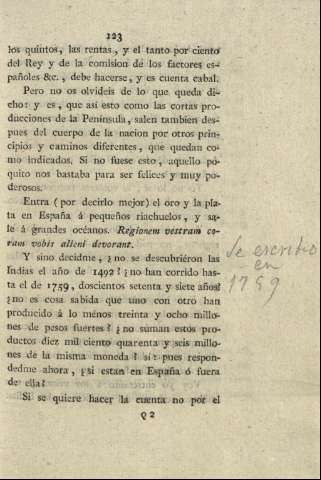 123
los quintos, las rentas, y el tanto por ciento
del Rey y de la comision de los factores es-
pañoles &c., debe hacerse, y es cuenta cabal.
Pero no os olvideis de lo que queda di-
cho: y es, que así esto como las cortas pro-
ducciones de la Península, salen tambien des-
pues del cuerpo de la nacion por otros prin-
cipios y caminos diferentes, que quedan co-
mo indicados. Si no fuese esto, aquello po-
quito nos bastaba para ser felices y muy po-
derosos.
Entra (por decirlo mejor) el oro y la pla-
ta en España á pequeños riachuelos, y sa-
le á grandes océanos. Regionem vestram co-
ram vobis alleni devorant.
Y sino decidme, ¿no se descubriéron las
Indias el año de 1492? ¿no han corrido has-
ta el de 1759, doscientos setenta y siete años?
¿no es cosa sabida que uno con otro han
producido á lo ménos treinta y ocho millo-
nes de pesos fuertes? ¿no suman estos pro-
ductos diez mil ciento quarenta y seis millo-
nes de la misma moneda? sí: pues respon-
dedme ahora, ¿si estan en España ó fuera
de ella?
Si se quiere hacer la cuenta no por el
Q 2
Se escribió
en
1759